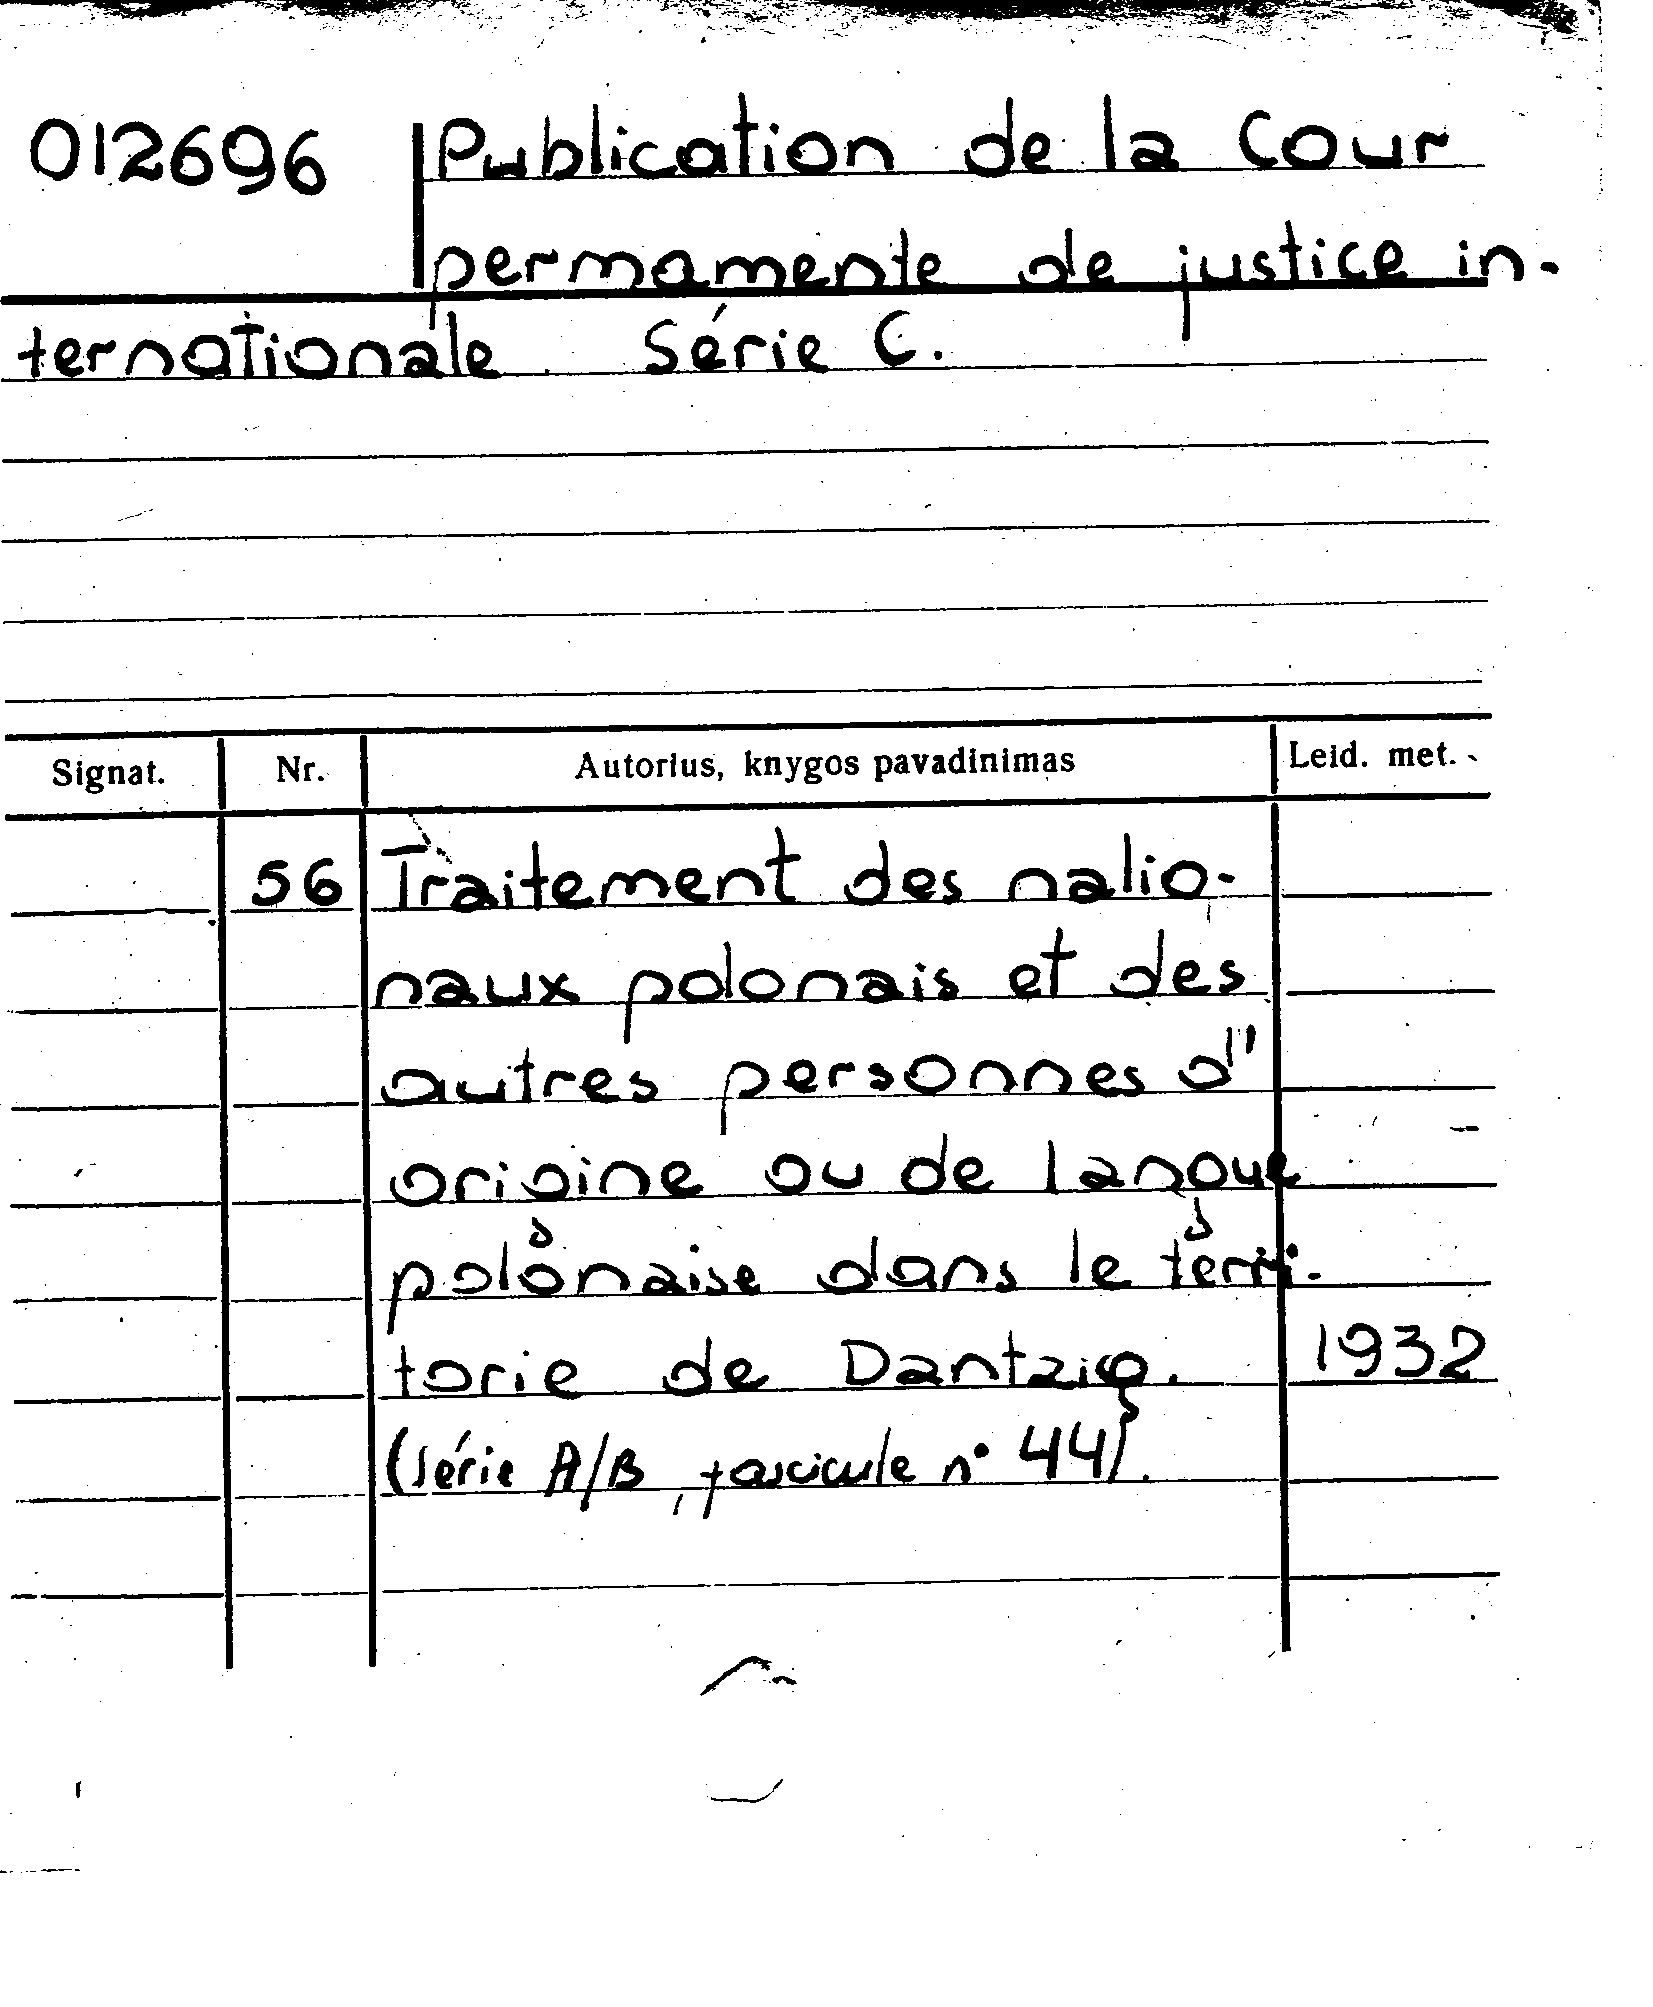 012696 Publication de la Cour
permamente de justice in-
ternationale Série C.
Signat. Nr. Autorius, knygos pavadinimas Leid. met.
56 Traitement des nalio-
naux polonais et des
autres personnes d''
origine ou de langue
polonaise dans le terri-
torie de Dantzig. 1932
(série A/B, fascicule n° 44).